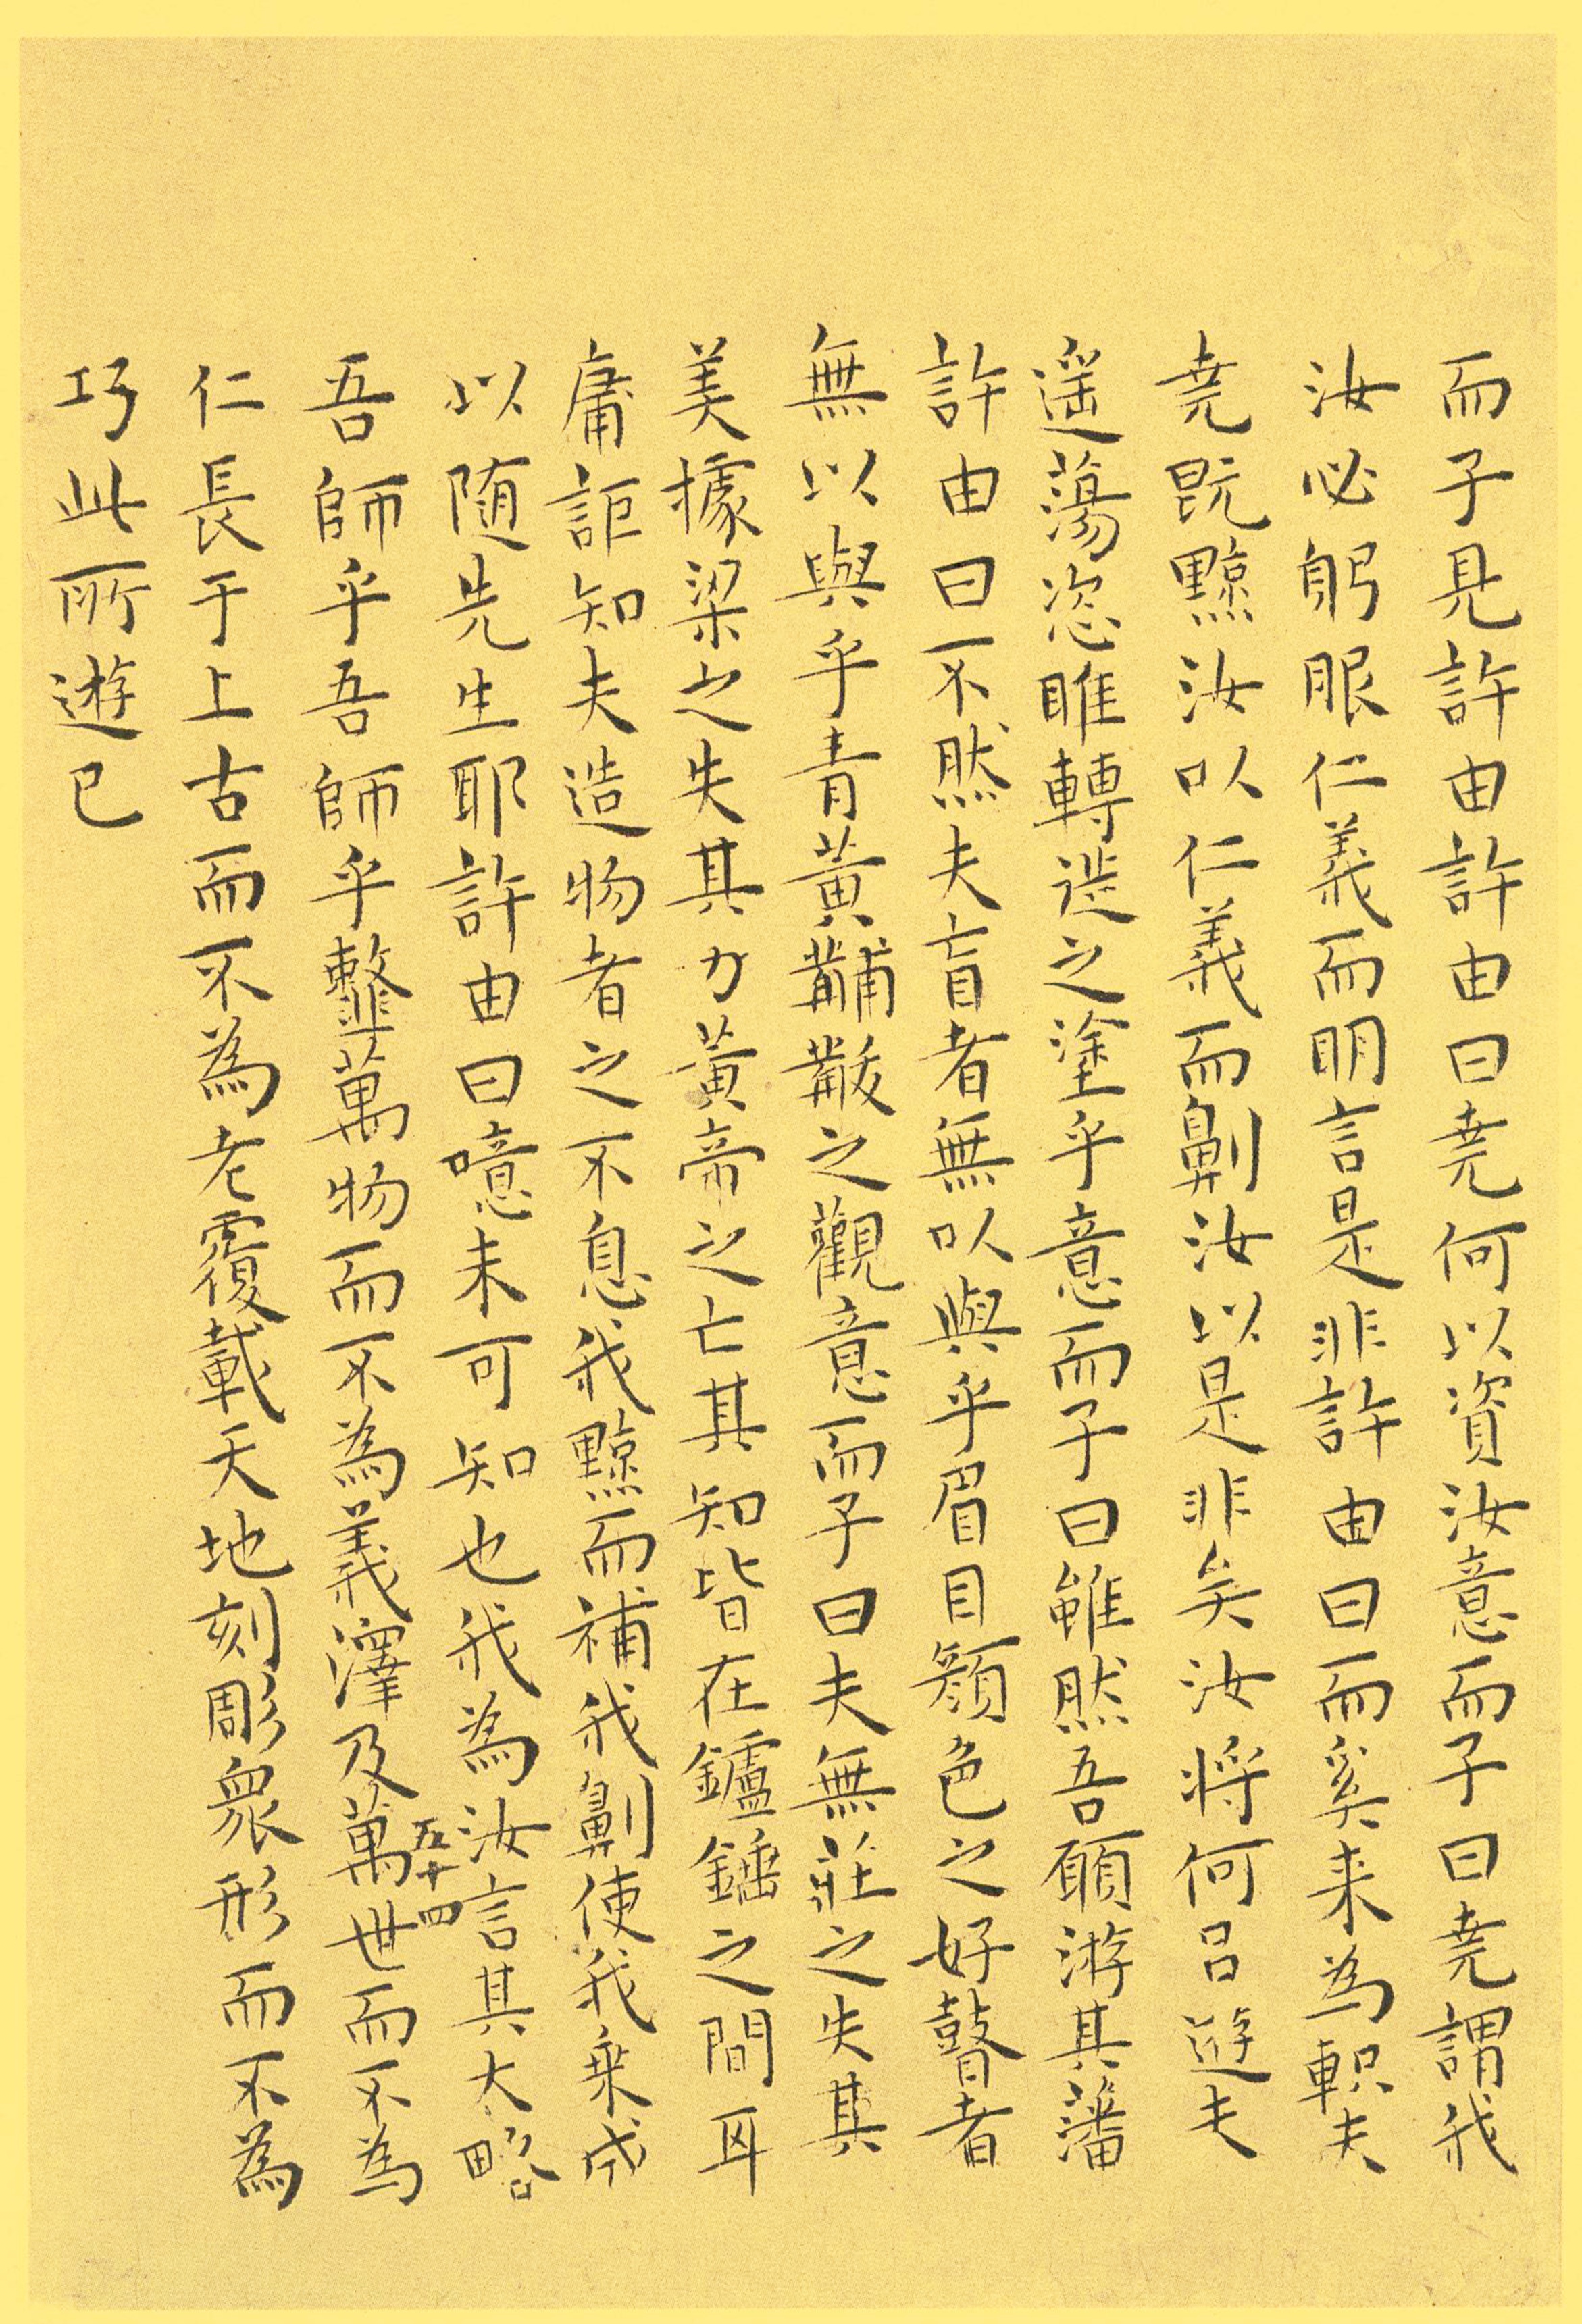 而子見許由許由曰堯何以資汝意而子曰堯謂我
汝必躬服仁義而明言是非許由曰而奚来為軹夫
堯既黥汝以仁義而劓汝以是非矣汝将何以遊夫
遥蕩恣睢轉徙之塗乎意而子曰雖然吾願游其藩
許由曰不然夫盲者無以與乎眉目顏色之好瞽者
無以與乎青黃黼黻之觀意而子曰夫無莊之失其
美據梁之失其力黃帝之亡其知皆在鑪錘之間耳
庸詎知夫造物者之不息我黥而補我劓使我乘成
以随先生耶許由曰噫未可知也我為汝言其大略
吾師乎吾師乎韲萬物而不為義澤及萬世而不為
仁長于上古而不為老覆載天地刻彫眾形而不為
巧此所遊已
五十四